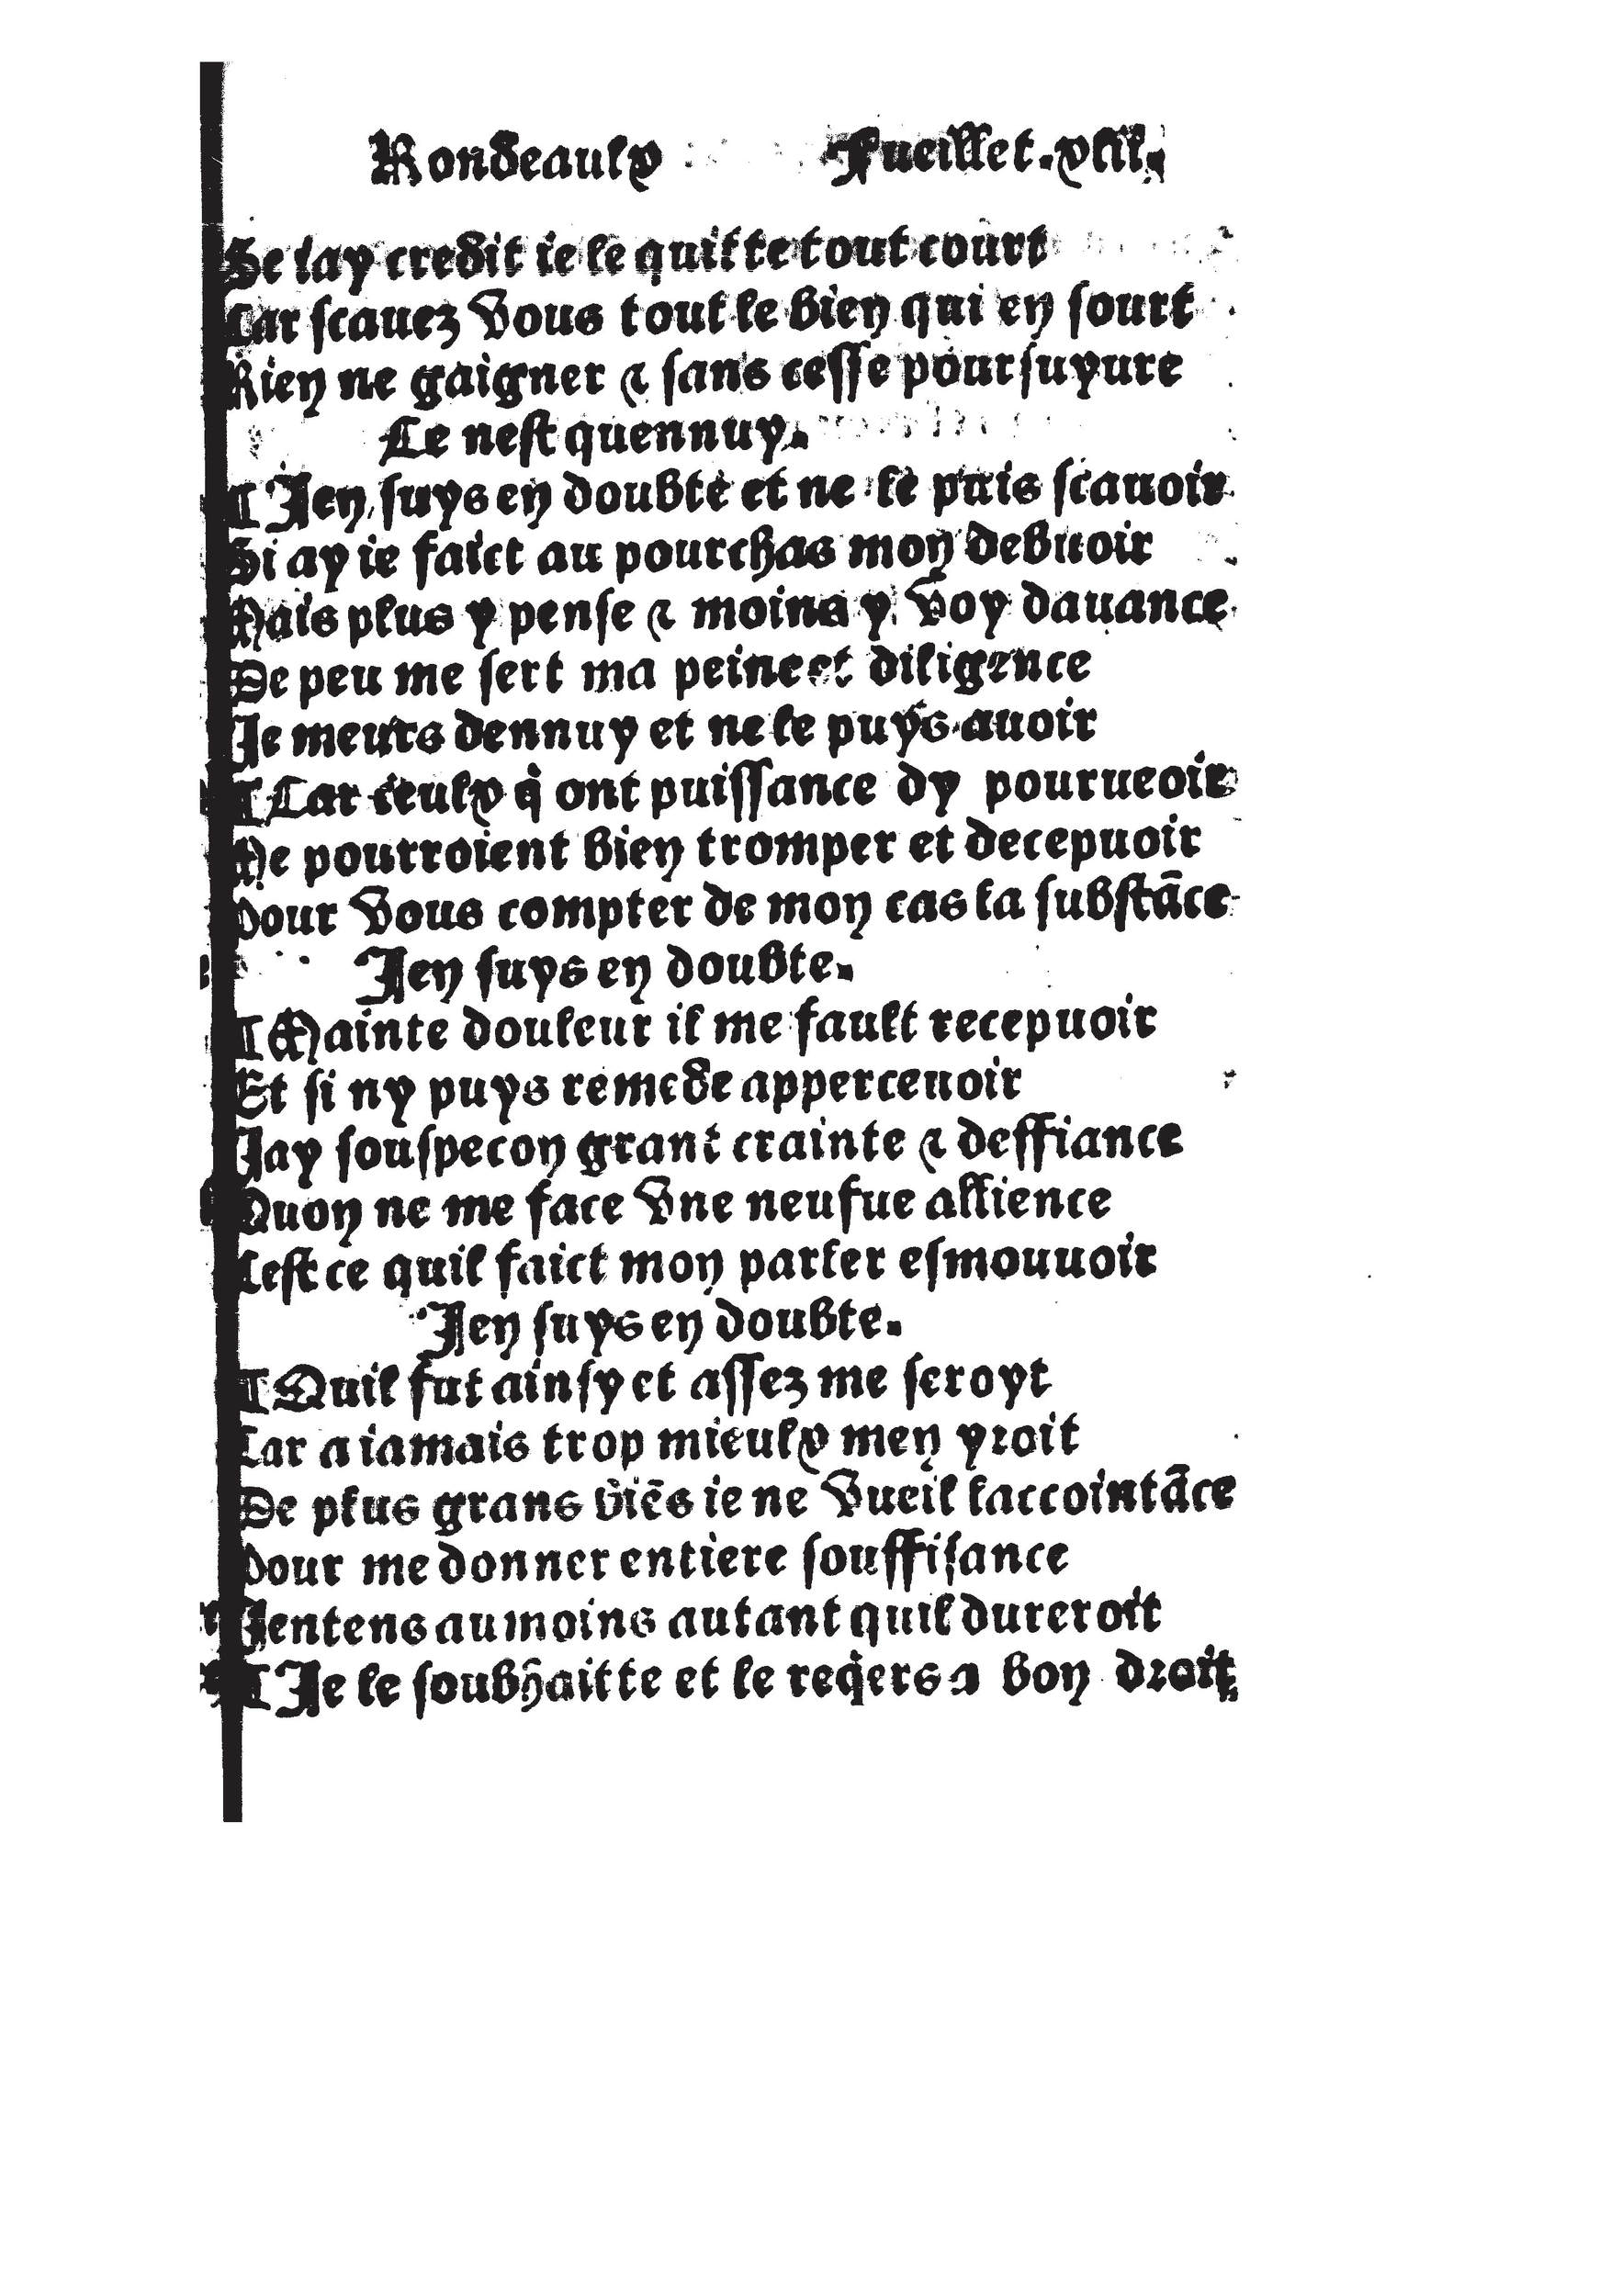 Rondeaulx Fueillet.
Se iay credit ie le quitte tout court
Car scauez vous tout le bien qui en sourt
Rien ne gaigner & sans cesse poursuyure
Ce nest quennuy.
¶ Jen suys en doubte et ne le puis scauoir
Si ay ie faict au pourchas mon debuoir
Mais plus y pense & moins y voy dauance
De peu me sert ma peine et diligence
Je meurs dennuy et ne le puys auoir
¶ Car ceulx q̇ ont puissance dy pourueoir
Me pourroient bien tromper et decepuoir
Pour vous compter de mon cas la substãce
Jen suys en doubte.
¶ Mainte douleur il me fault recepuoir
Et si ny puys remede apperceuoir
Jay souspecon grant crainte & deffiance
Quon ne me face vne neufue allience
Cest ce quil faict mon parler esmouuoir
Jen suys en doubte.
¶ Quil fut ainsy et assez me seroyt
Car a iamais trop mieulx men yroit
De plus grans biẽs ie ne vueil laccointãce
Pour me donner entiere souffisance
Jentens au moins autant quil dureroit
¶ Je le soubhaitte et le req̇ers a bon droit